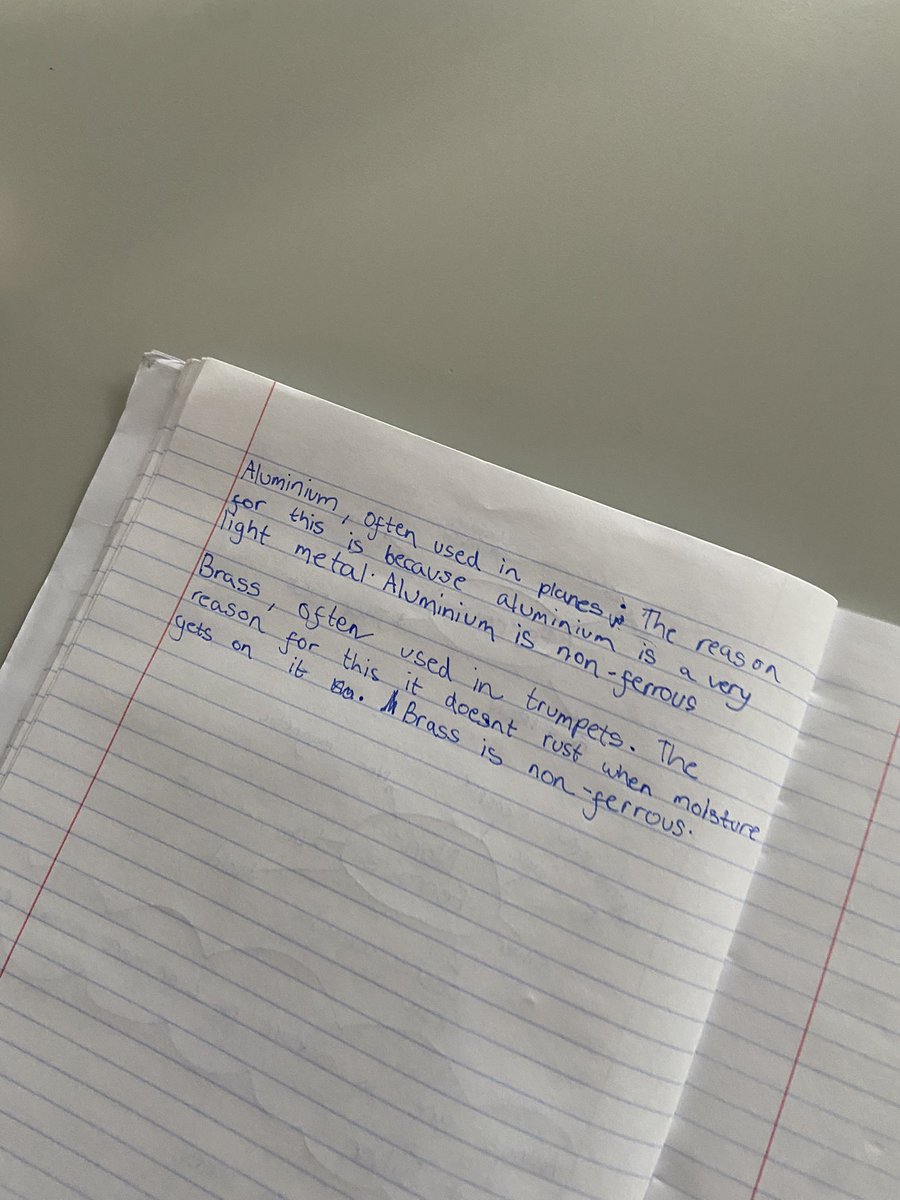 Aluminium, often used in planes. The reason
for this is because aluminium is a very
light metal. Aluminium is non-ferrous
Brass, often used in trumpets. The
reason for this it doesnt rust when moisture
gets on it. Brass is non-ferrous.